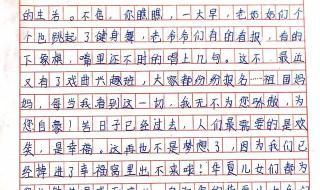 的生活。不信，你瞧瞧，一大早，老奶奶们个
个也跳起了健身舞，老爷爷们有的看报，有的
下象棋，嘴里还不时的唱上几句。这不，最近
又有了戏曲兴趣班，大家都纷纷报名……祖国妈
妈，每当我看到这一切，我无不为您骄傲，为
您自豪！苦日子已经过去，人们最需要的是欢
笑，是幸福。这再也不是梦想了，因为我们已
经掉进了幸福窝里出不来啦！华夏儿女们都为